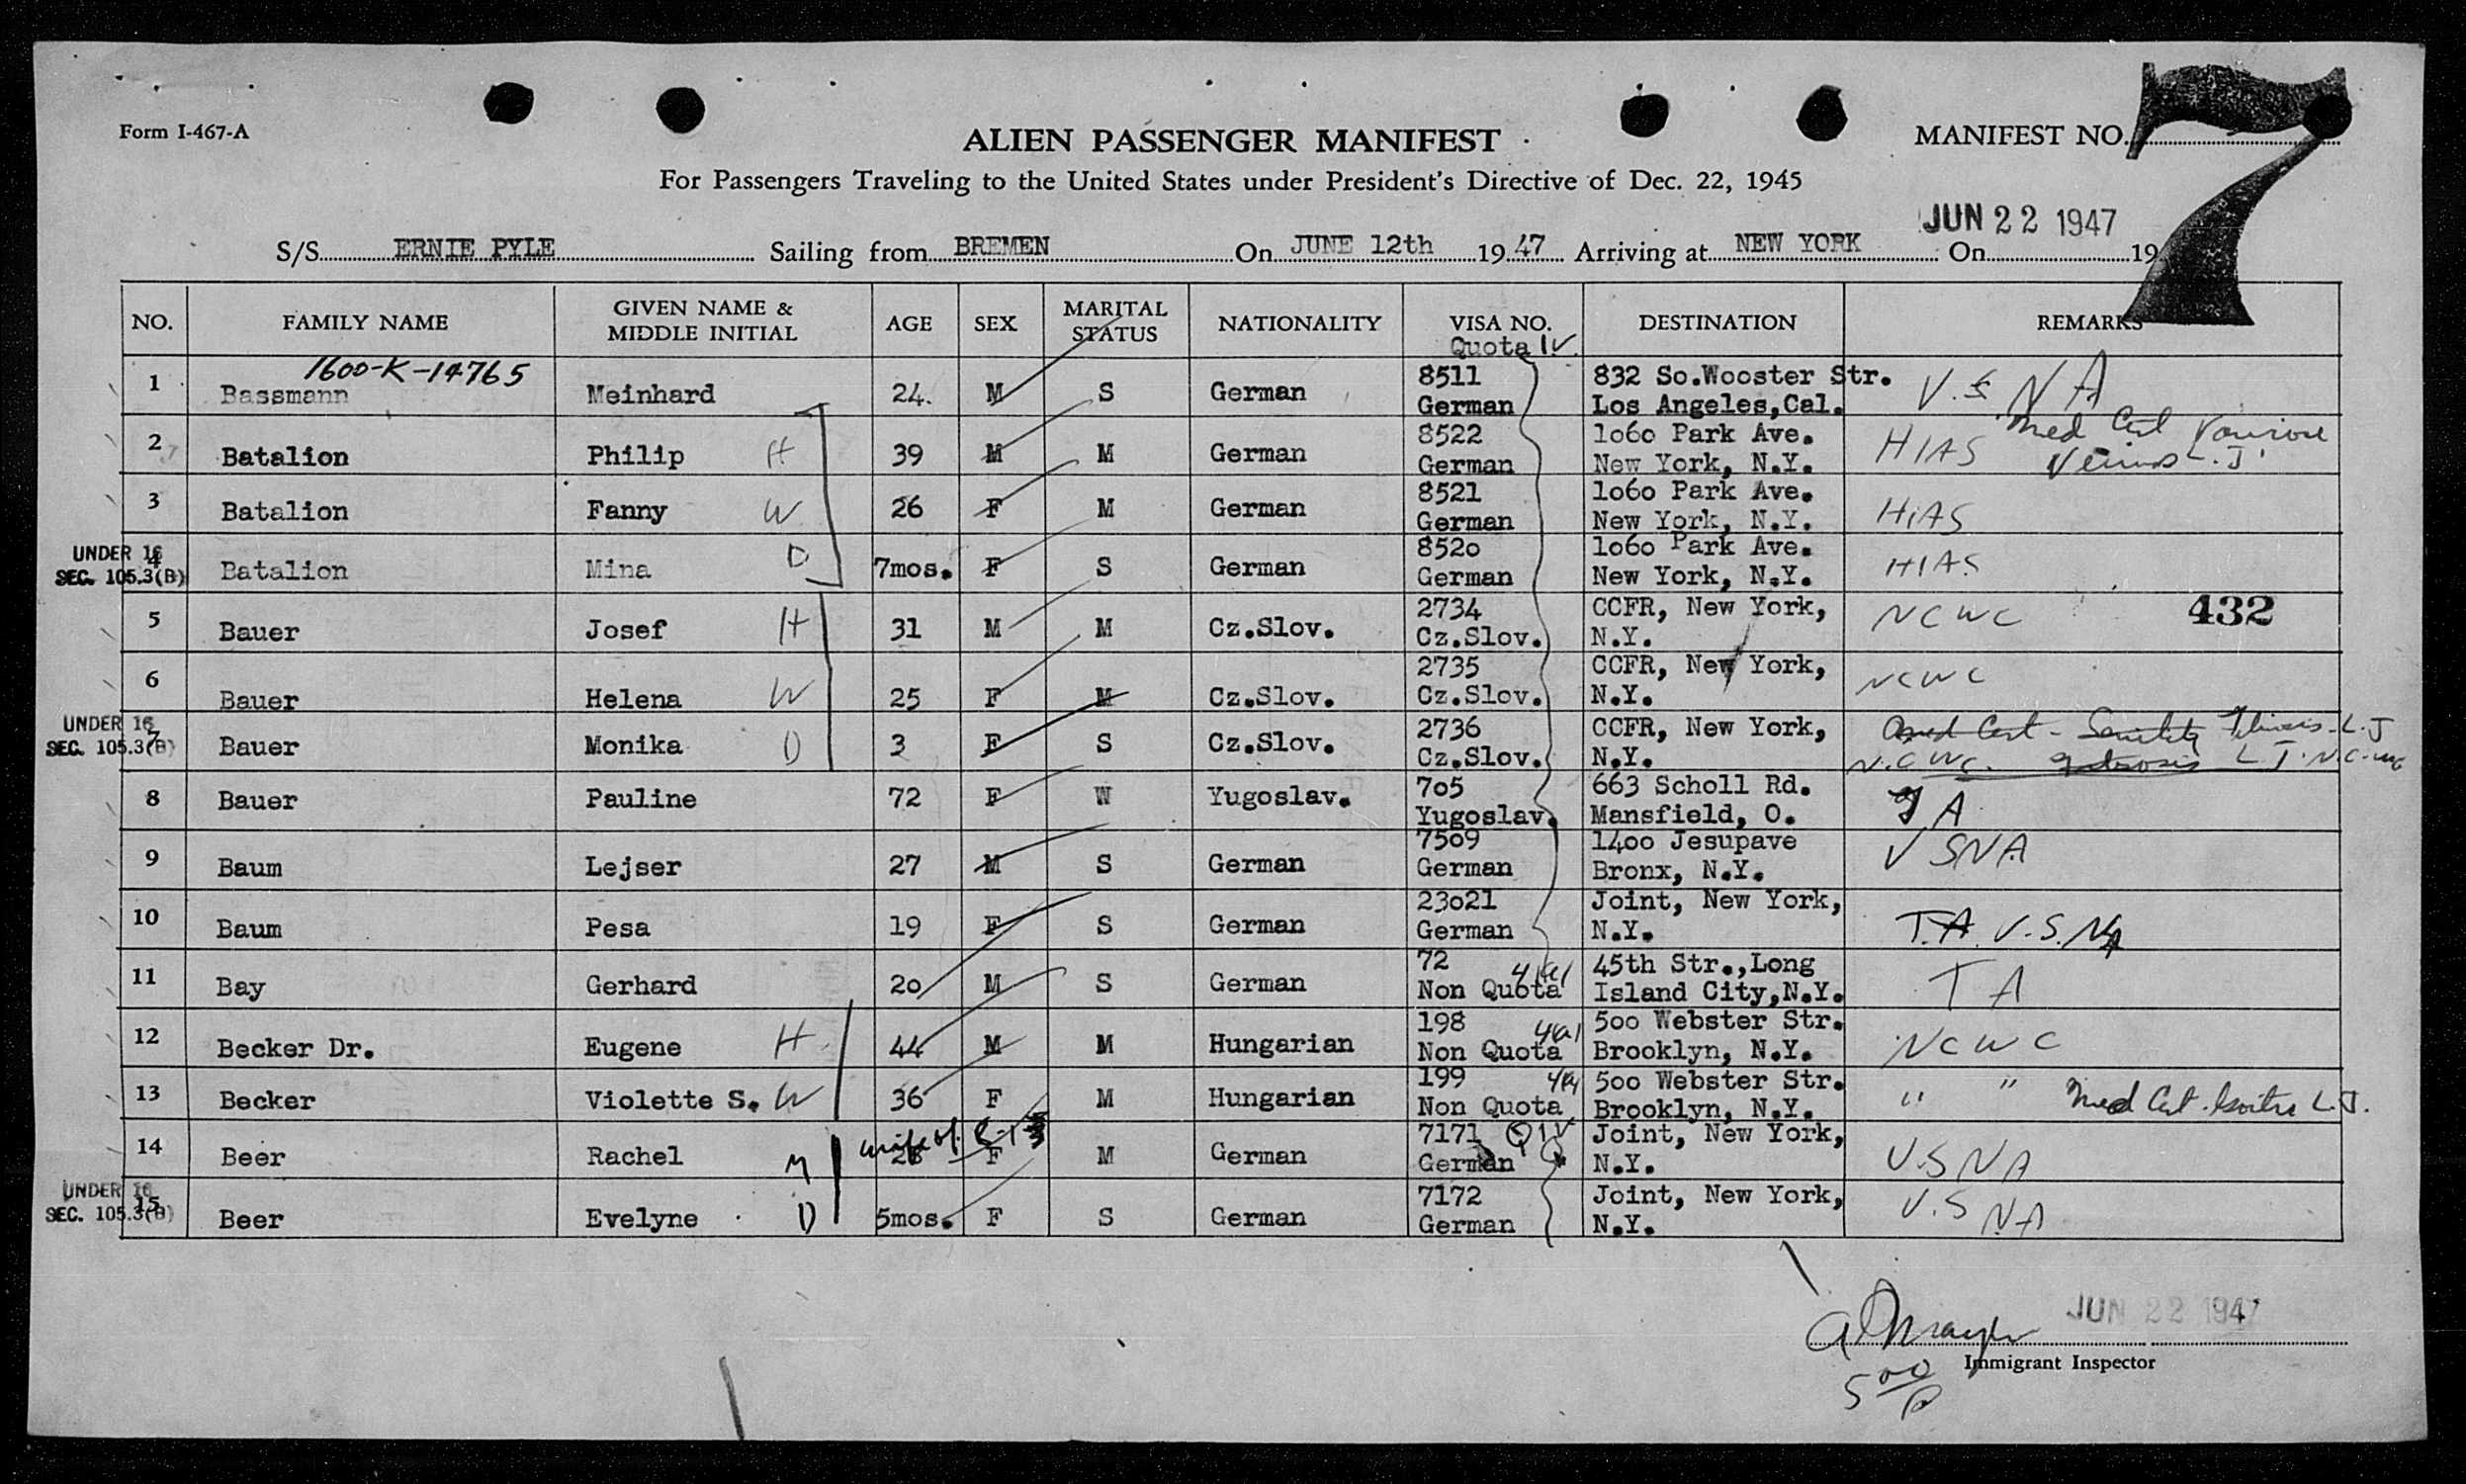 Form I-467-A
ALIEN PASSENGER MANIFEST
MANIFEST NO. 7
For Passengers Traveling to the United States under President's Directive of Dec. 22, 1945
JUN 22 1947
S/S ERNIE PYLE Sailing from BREMEN On JUNE 12th 1947 Arriving at NEW YORK On 19
NO. FAMILY NAME GIVEN NAME & MIDDLE INITIAL AGE SEX MARITAL STATUS NATIONALITY VISA NO. DESTINATION REMARKS
Quota IV
1600-K-14765
1 Bassmann Meinhard 24. M S German 8511 German 832 So.Wooster Str. Los Angeles,Cal. V.S NA
2 Batalion Philip H 39 M M German 8522 German 1o6o Park Ave. New York, N.Y. HIAS Med Cert L.J.
3 Batalion Fanny W 26 F M German 8521 German 1o6o Park Ave. New York, N.Y. HIAS
UNDER 16 SEC. 105.3(B)
4 Batalion Mina D 7mos. F S German 852o German 1o6o Park Ave. New York, N.Y. HIAS
5 Bauer Josef H 31 M M Cz.Slov. 2734 Cz.Slov. CCFR, New York, N.Y. NCWC 432
6 Bauer Helena W 25 F M Cz.Slov. 2735 Cz.Slov. CCFR, New York, N.Y. NCWC
UNDER 16 SEC. 105.3(B)
7 Bauer Monika D 3 F S Cz.Slov. 2736 Cz.Slov. CCFR, New York, N.Y. Med Cert - L.J N.C.W.C. L.J.
8 Bauer Pauline 72 F W Yugoslav. 7o5 Yugoslav. 663 Scholl Rd. Mansfield, O. TA
9 Baum Lejser 27 M S German 75o9 German 14oo Jesupave Bronx, N.Y. V SNA
10 Baum Pesa 19 F S German 23o21 German Joint, New York, N.Y. T.A. V.S.NA
11 Bay Gerhard 2o M S German 72 Non Quota 45th Str.,Long Island City,N.Y. TA
12 Becker Dr. Eugene H 44 M M Hungarian 198 Non Quota 5oo Webster Str. Brooklyn, N.Y. NCWC
13 Becker Violette S. W 36 F M Hungarian 199 Non Quota 5oo Webster Str. Brooklyn, N.Y. " " Med Cert. Goitre L.J.
wife of
14 Beer Rachel M 28 F M German 7171 Q IV German Joint, New York, N.Y. V.SNA
UNDER 16 SEC. 105.3(B)
15 Beer Evelyne D 5mos. F S German 7172 German Joint, New York, N.Y. V.S NA
JUN 22 1947
Immigrant Inspector